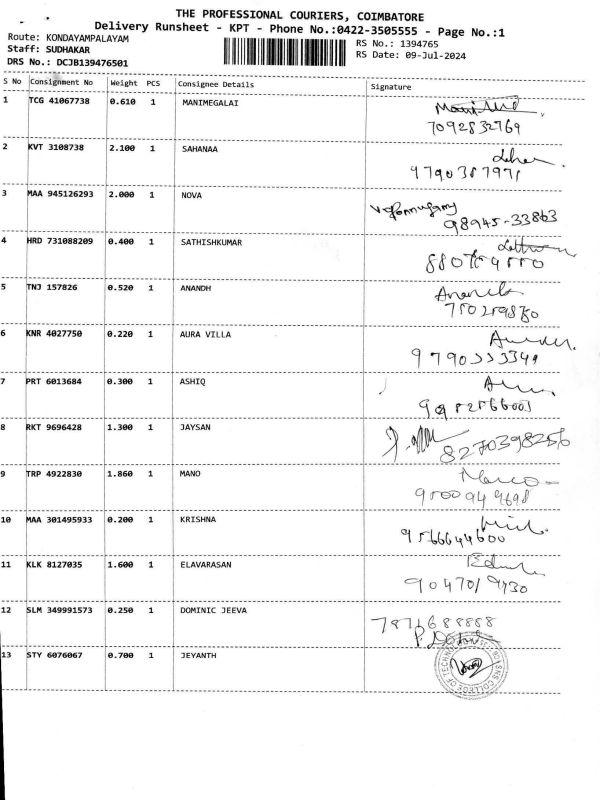 THE PROFESSIONAL COURIERS, COIMBATORE
Delivery Runsheet - KPT - Phone No.:0422-3505555 - Page No.:1
Route: KONDAYAMPALAYAM
Staff: SUDHAKAR
DRS No.: DCJB139476501
RS No.: 1394765
RS Date: 09-Jul-2024
S No Consignment No Weight PCS Consignee Details Signature
1 TCG 41067738 0.610 1 MANIMEGALAI
7092832769
2 KVT 3108738 2.100 1 SAHANAA
3 MAA 945126293 2.000 1 NOVA
98945-33863
4 HRD 731088209 0.400 1 SATHISHKUMAR
5 TNJ 157826 0.520 1 ANANDH
6 KNR 4027750 0.220 1 AURA VILLA
7 PRT 6013684 0.300 1 ASHIQ
8 RKT 9696428 1.300 1 JAYSAN
8270398256
9 TRP 4922830 1.860 1 MANO
10 MAA 301495933 0.200 1 KRISHNA
9566644600
11 KLK 8127035 1.600 1 ELAVARASAN
12 SLM 349991573 0.250 1 DOMINIC JEEVA
13 STY 6076067 0.700 1 JEYANTH
SNS COLLEGE OF TECHNOLOGY